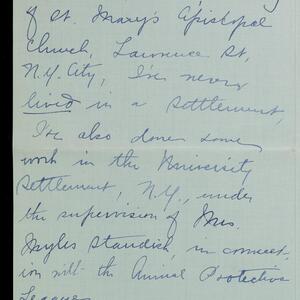 of St. Mary's Episcopal
Church, Lawrence St,
N.Y. City, I've never
lived in a settlement,
I've also done some
work in the University
Settlement, N.Y., under
the supervision of Mrs.
Myles Standish, in connect-
ion with the Animal Protective
League